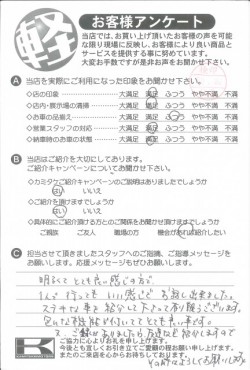 軽
お客様アンケート
当店では、お買い上げ頂いたお客様の声を可能
な限り現場に反映し、お客様により良い商品と
サービスを提供する事に努めています。
大変お手数ですが是非お声をお聞かせ下さい。
A 当店を実際にご利用になった印象をお聞かせ下さい。
◇店の印象 大満足 満足 ふつう やや不満 不満
◇店内・展示場の清掃 大満足 満足 ふつう やや不満 不満
◇お車の品揃え 大満足 満足 ふつう やや不満 不満
◇営業スタッフの対応 大満足 満足 ふつう やや不満 不満
◇納車時のお車の状態 大満足 満足 ふつう やや不満 不満
B 当店はご紹介を大切にしております。
ご紹介キャンペーンについてお聞かせ下さい。
◇カミタケご紹介キャンペーンのご説明はありましたでしょうか
はい いいえ
◇ご紹介を頂けますでしょうか
はい いいえ
◇具体的にご紹介頂ける方とのご関係をお聞かせ頂けますでしょうか
ご親族 ご友人 職場の方 機会があれば紹介したい
C 担当させて頂きましたスタッフへのご指摘、ご指導メッセージを
お願いします。応援メッセージもぜひお願いします。
明るくてとても良い感じの方で
1人で行っても いい感じで お話し出来ました。
ステキな車を紹介して下さって有り難うございます。
色んな機能が付いててとても良い車です。
又、ご縁がありましたら友達など紹介しますので
よろしくお願いします
ご協力に心よりお礼を申し上げます。
今後とも宜しくお引き立てご愛顧の程お願い申し上げます。
またのご来店を心からお待ちしております。